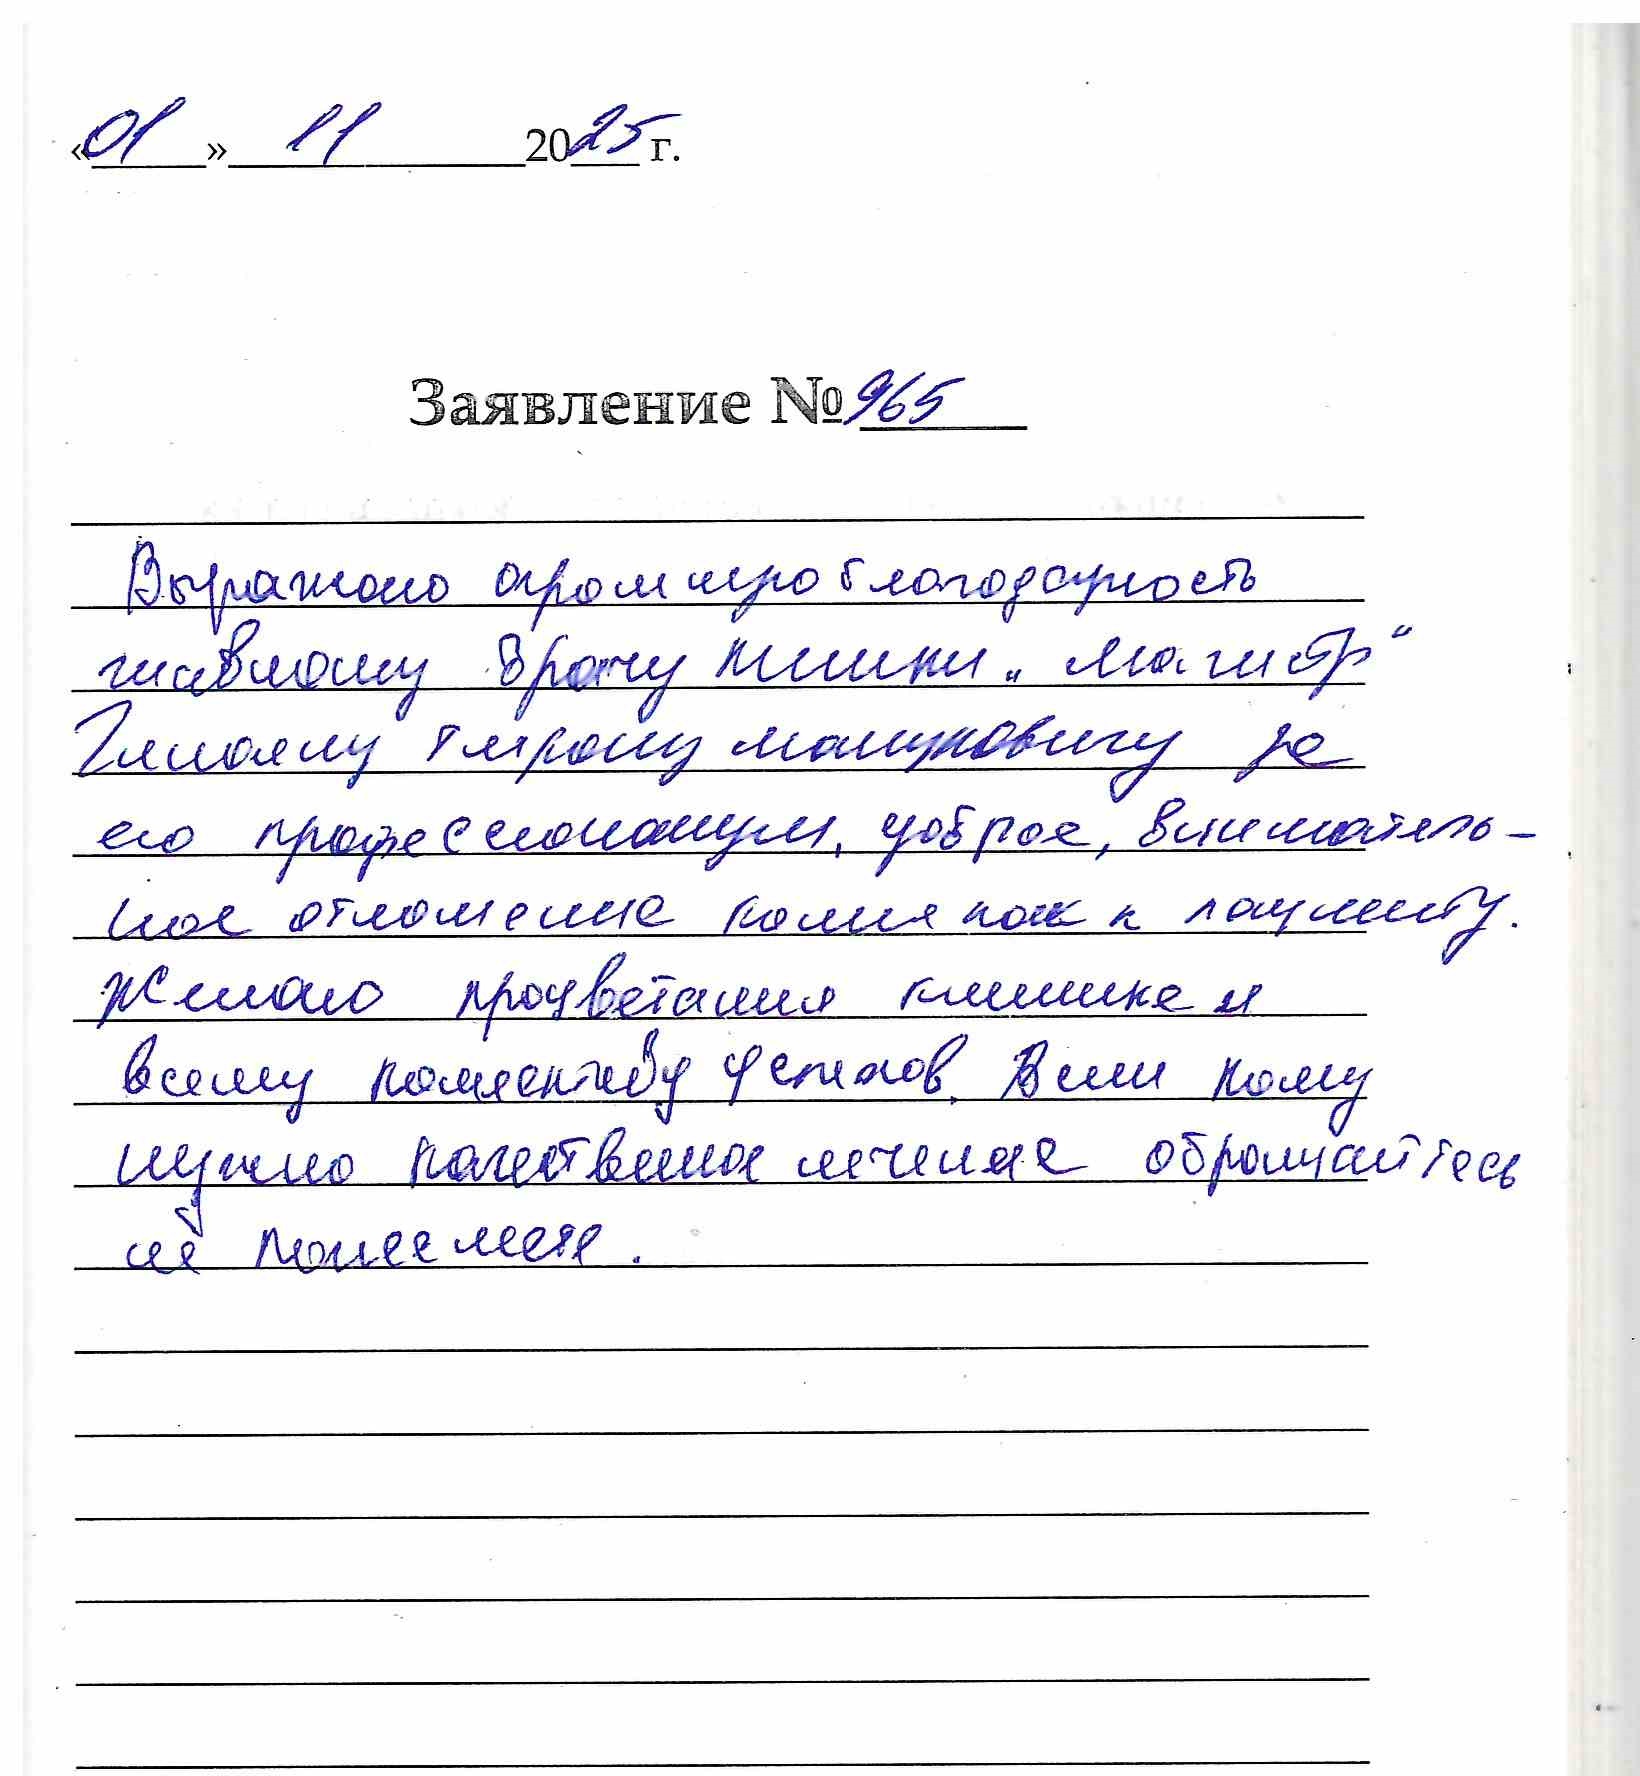 «01» 11 2025 г.
Заявление № 965
Выражаю огромную благодарность
главному врачу клиники „Магистр“
за
его профессионализм, доброе, вниматель-
ное отношение ко мне как к пациенту.
Желаю процветания клинике и
всему коллективу успехов. Если кому
нужно качественное лечение обращайтесь
не пожалеете.